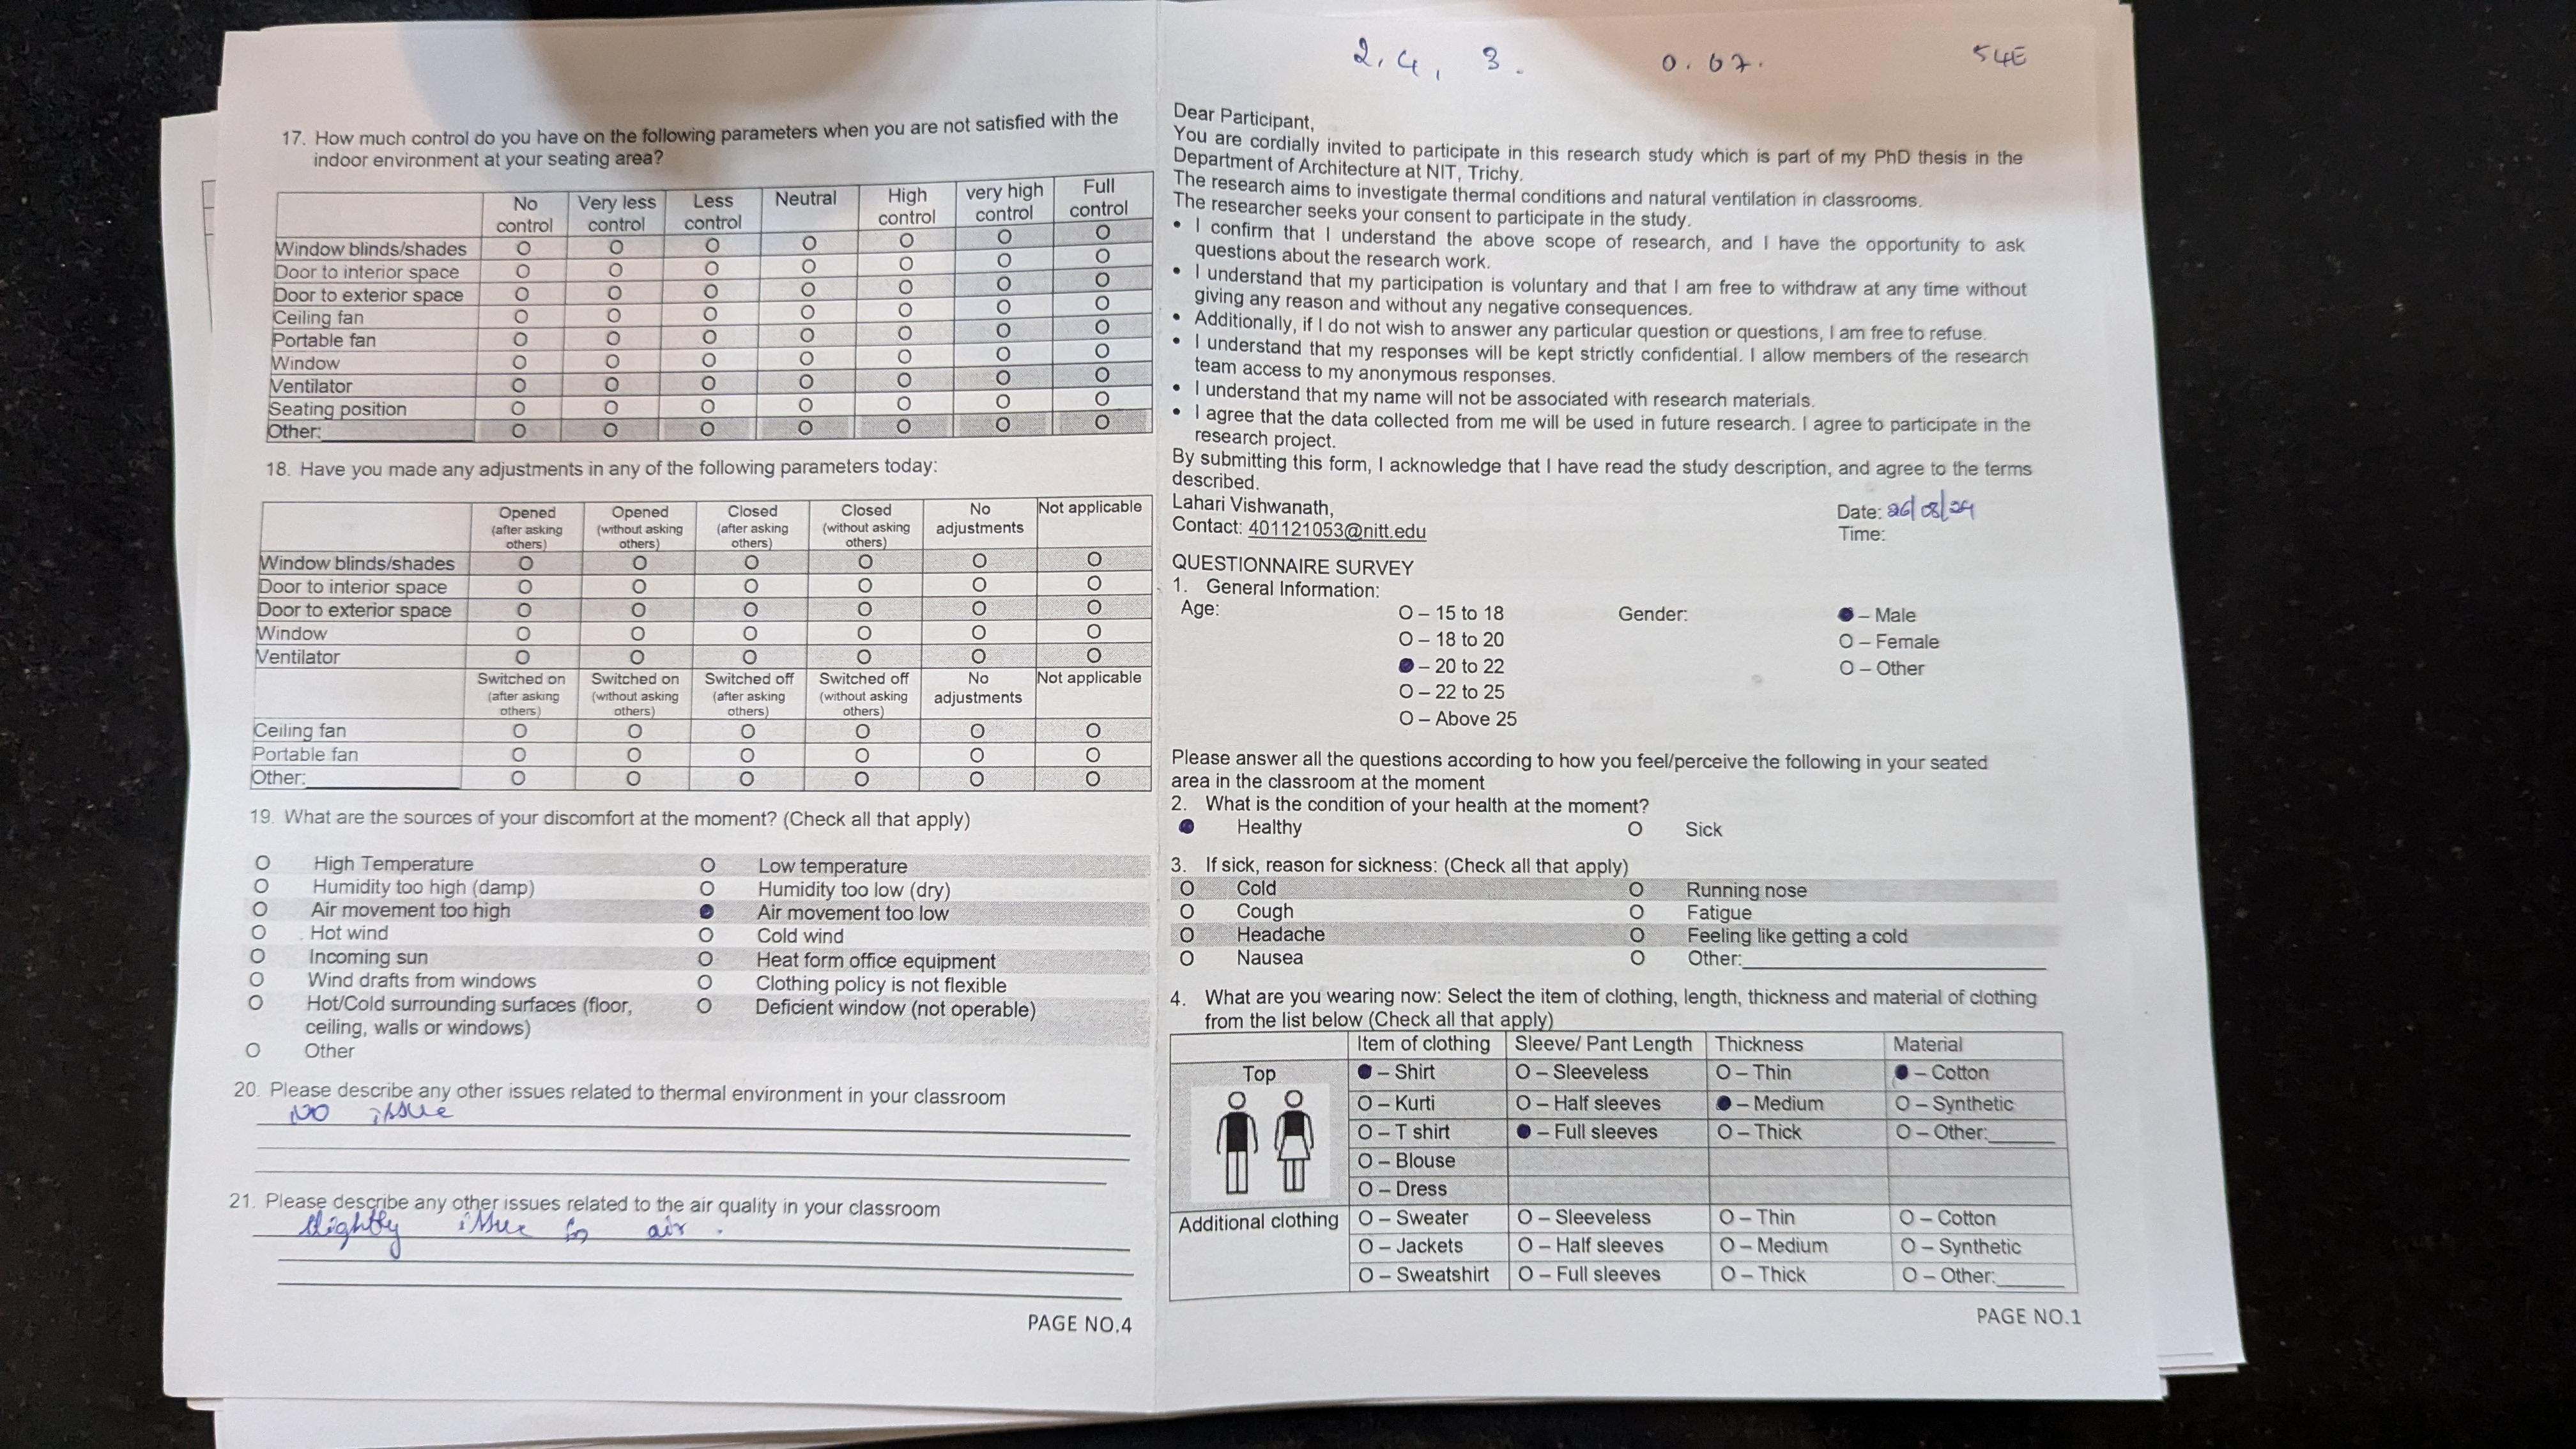 17. How much control do you have on the following parameters when you are not satisfied with the
indoor environment at your seating area?
No control Very less control Less control Neutral High control very high control Full control
Window blinds/shades O O O O O O O
Door to interior space O O O O O O O
Door to exterior space O O O O O O O
Ceiling fan O O O O O O O
Portable fan O O O O O O O
Window O O O O O O O
Ventilator O O O O O O O
Seating position O O O O O O O
Other: O O O O O O O
18. Have you made any adjustments in any of the following parameters today:
Opened (after asking others) Opened (without asking others) Closed (after asking others) Closed (without asking others) No adjustments Not applicable
Window blinds/shades O O O O O O
Door to interior space O O O O O O
Door to exterior space O O O O O O
Window O O O O O O
Ventilator O O O O O O
Switched on (after asking others) Switched on (without asking others) Switched off (after asking others) Switched off (without asking others) No adjustments Not applicable
Ceiling fan O O O O O O
Portable fan O O O O O O
Other: O O O O O O
19. What are the sources of your discomfort at the moment? (Check all that apply)
O High Temperature O Low temperature
O Humidity too high (damp) O Humidity too low (dry)
O Air movement too high ● Air movement too low
O Hot wind O Cold wind
O Incoming sun O Heat form office equipment
O Wind drafts from windows O Clothing policy is not flexible
O Hot/Cold surrounding surfaces (floor, O Deficient window (not operable)
ceiling, walls or windows)
O Other
20. Please describe any other issues related to thermal environment in your classroom
No issue
21. Please describe any other issues related to the air quality in your classroom
slightly issue in air.
PAGE NO.4
2, 4, 3. 0.67. 54E
Dear Participant,
You are cordially invited to participate in this research study which is part of my PhD thesis in the
Department of Architecture at NIT, Trichy.
The research aims to investigate thermal conditions and natural ventilation in classrooms.
The researcher seeks your consent to participate in the study.
• I confirm that I understand the above scope of research, and I have the opportunity to ask
questions about the research work.
• I understand that my participation is voluntary and that I am free to withdraw at any time without
giving any reason and without any negative consequences.
• Additionally, if I do not wish to answer any particular question or questions, I am free to refuse.
• I understand that my responses will be kept strictly confidential. I allow members of the research
team access to my anonymous responses.
• I understand that my name will not be associated with research materials.
• I agree that the data collected from me will be used in future research. I agree to participate in the
research project.
By submitting this form, I acknowledge that I have read the study description, and agree to the terms
described.
Lahari Vishwanath, Date: 26/08/24
Contact: 401121053@nitt.edu Time:
QUESTIONNAIRE SURVEY
1. General Information:
Age: O – 15 to 18 Gender: ● – Male
O – 18 to 20 O – Female
● – 20 to 22 O – Other
O – 22 to 25
O – Above 25
Please answer all the questions according to how you feel/perceive the following in your seated
area in the classroom at the moment
2. What is the condition of your health at the moment?
● Healthy O Sick
3. If sick, reason for sickness: (Check all that apply)
O Cold O Running nose
O Cough O Fatigue
O Headache O Feeling like getting a cold
O Nausea O Other:
4. What are you wearing now: Select the item of clothing, length, thickness and material of clothing
from the list below (Check all that apply)
Item of clothing Sleeve/ Pant Length Thickness Material
Top ● – Shirt O – Sleeveless O – Thin ● – Cotton
O – Kurti O – Half sleeves ● – Medium O – Synthetic
O – T shirt ● – Full sleeves O – Thick O – Other:
O – Blouse
O – Dress
Additional clothing O – Sweater O – Sleeveless O – Thin O – Cotton
O – Jackets O – Half sleeves O – Medium O – Synthetic
O – Sweatshirt O – Full sleeves O – Thick O – Other:
PAGE NO.1